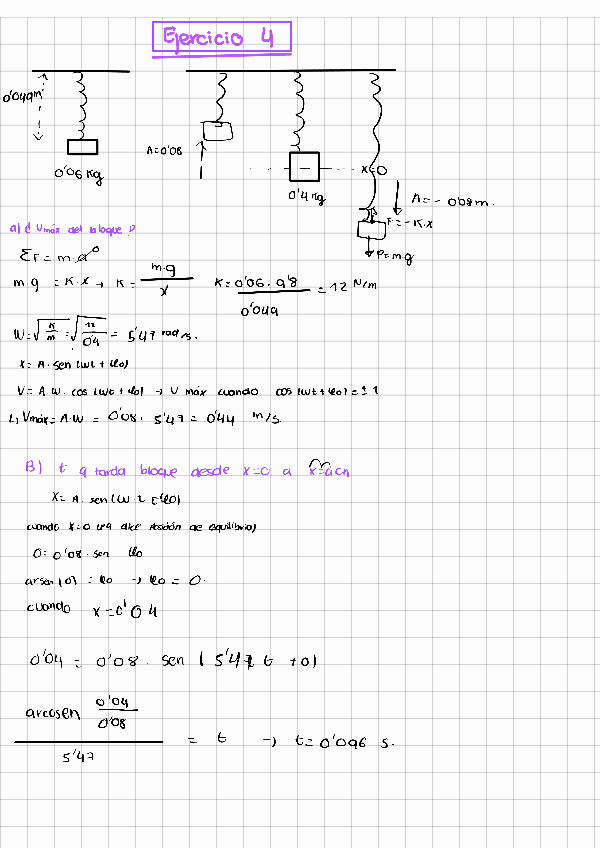 Ejercicio 4
0'049m
A=0'08
0'06 kg
0'4 kg
x=0
A = - 0'08 m.
F=-K.x
P=m.g
a) ¿ Vmáx del bloque ?
ΣF = m.a⁰
m.g = K.x → K = m.g / x   K = 0'06 . 9'8 / 0'049 = 12 N/m
W = √(K/m) = √(12/0'4) = 5'47 rad/s.
x = A. sen (wt + φo)
V = A W. cos (wt + φo) → V máx cuando cos (wt + φo) = ±1
↳ Vmáx = A.W = 0'08. 5'47 = 0'44 m/s.
B) t q tarda bloque desde x=0 a x=4cm
x = A. sen (W t + φo)
cuando x=0 (ya dice posición de equilibrio)
0 = 0'08 . sen φo
arsen (0) = φo → φo = 0.
cuando x = 0'04
0'04 = 0'08 . sen ( 5'47 t + 0)
arcosen 0'04 / 0'08
/ 5'47 = t → t = 0'096 s.